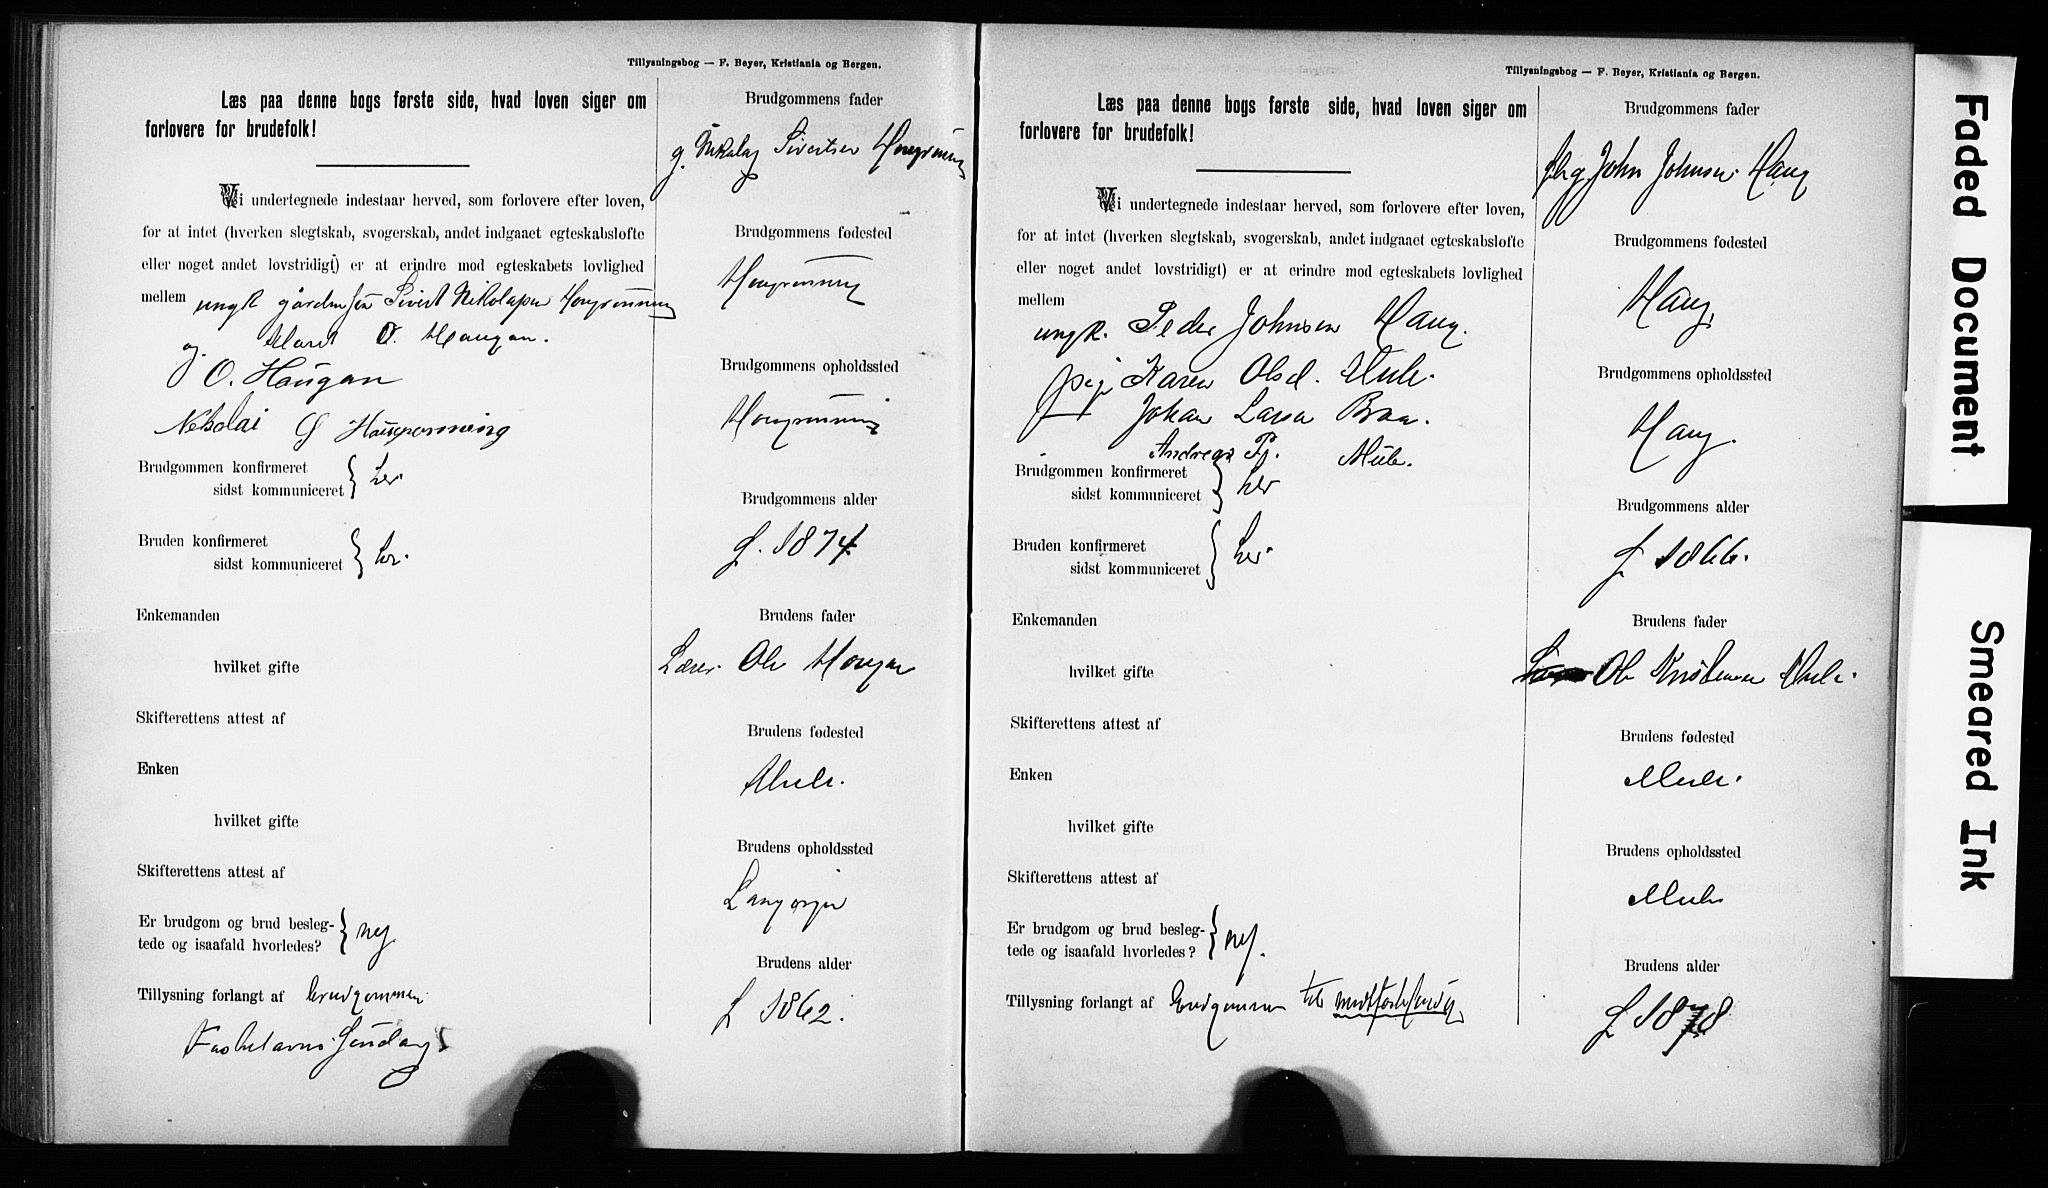 Tillysningsbog — F. Beyer, Kristiania og Bergen.
Læs paa denne bogs første side, hvad loven siger om
forlovere for brudefolk!
Vi undertegnede indestaar herved, som forlovere efter loven,
for at intet (hverken slegtskab, svogerskab, andet indgaaet egteskabsløfte
eller noget andet lovstridigt) er at erindre mod egteskabets lovlighed
mellem ungk. Sivert Nikolajsen
og Maret O. Haugan.
O. Haugan
Nekolai
Brudgommen konfirmeret
sidst kommuniceret } her.
Bruden konfirmeret
sidst kommuniceret } her.
Enkemanden
hvilket gifte
Skifterettens attest af
Enken
hvilket gifte
Skifterettens attest af
Er brudgom og brud besleg-
tede og isaafald hvorledes? } nej
Tillysning forlangt af Brudgommen
Fastelavns Søndag
Brudgommens fader
g. Nikolaj Sivertsen
Brudgommens fødested
Brudgommens opholdssted
Brudgommens alder
f. 1874
Brudens fader
Lærer Ole Haugan
Brudens fødested
Mule.
Brudens opholdssted
Brudens alder
f. 1862.
Tillysningsbog — F. Beyer, Kristiania og Bergen.
Læs paa denne bogs første side, hvad loven siger om
forlovere for brudefolk!
Vi undertegnede indestaar herved, som forlovere efter loven,
for at intet (hverken slegtskab, svogerskab, andet indgaaet egteskabsløfte
eller noget andet lovstridigt) er at erindre mod egteskabets lovlighed
mellem
ungk. Peder Johnsen Haug.
pige Karen Olsd. Mule.
Johan Larsen Braa.
Andreas P. Mule.
Brudgommen konfirmeret
sidst kommuniceret } her
Bruden konfirmeret
sidst kommuniceret } her.
Enkemanden
hvilket gifte
Skifterettens attest af
Enken
hvilket gifte
Skifterettens attest af
Er brudgom og brud besleg-
tede og isaafald hvorledes? } nej.
Tillysning forlangt af Brudgommen til
Brudgommens fader
John Johnsen Haug
Brudgommens fødested
Haug.
Brudgommens opholdssted
Haug.
Brudgommens alder
f. 1866.
Brudens fader
Ole Kristensen Mule.
Brudens fødested
Mule.
Brudens opholdssted
Mule
Brudens alder
f. 1878
Faded Document
Smeared Ink